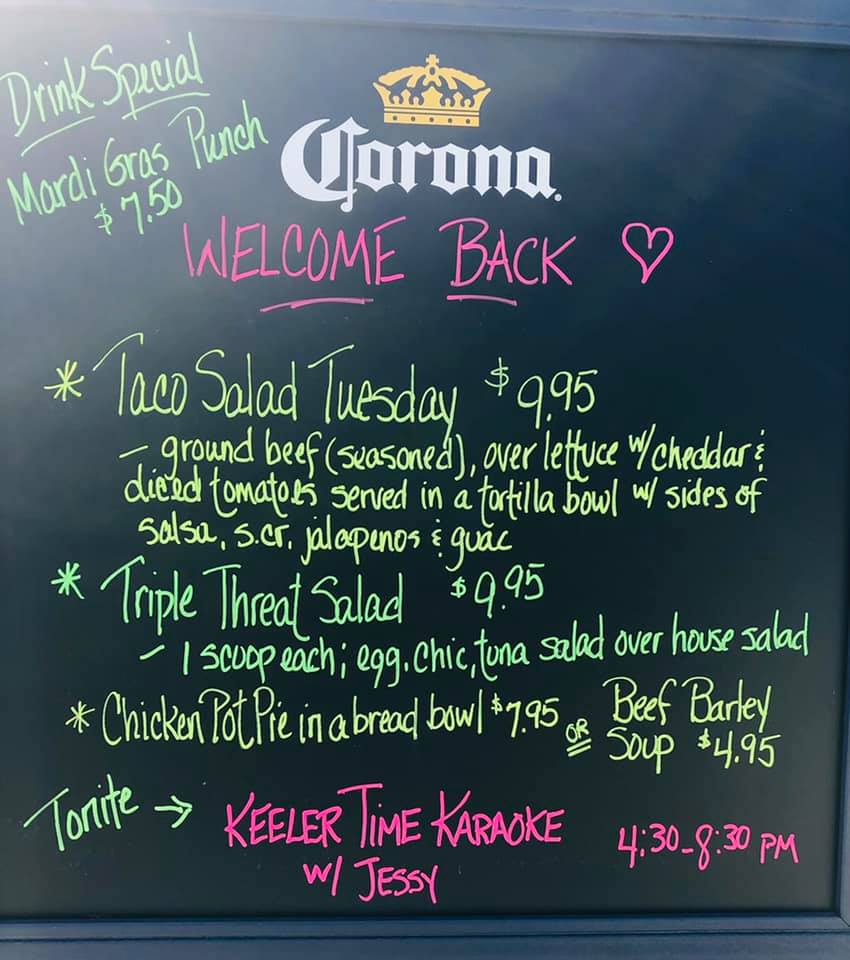 Drink Special
Mardi Gras Punch
$7.50
Corona.
WELCOME BACK ♡
* Taco Salad Tuesday $9.95
- ground beef (seasoned), over lettuce w/ cheddar &
diced tomatoes served in a tortilla bowl w/ sides of
salsa, s.cr, jalapenos & guac
* Triple Threat Salad $9.95
- 1 scoop each; egg, chic, tuna salad over house salad
* Chicken Pot Pie in a bread bowl $7.95 OR Beef Barley
Soup $4.95
Tonite → KEELER TIME KARAOKE
w/ JESSY
4:30-8:30 PM